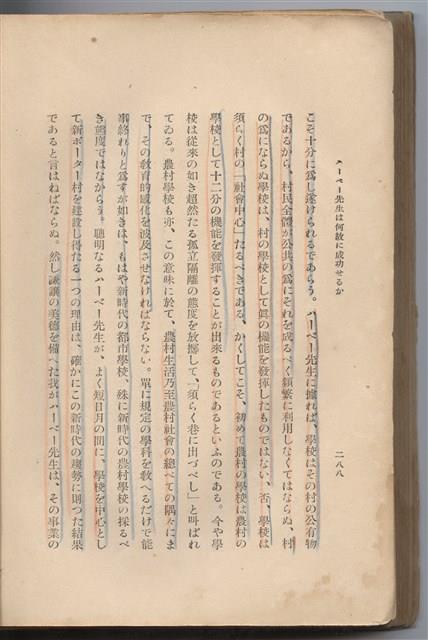 ハーベー先生は何故に成功せるか
二八八
こそ十分に爲し遂げられるであらう。ハーベー先生に據れば、學校はその村の公有物
であるから、村民全體が公共の爲にそれを成るべく頻繁に利用しなくてはならぬ、村
の爲にならぬ學校は、村の學校として眞の機能を發揮したものではない、否、學校は
須らく村の「社會中心」たるべきである、かくしてこそ、初めて農村の學校は農村の
學校として十二分の機能を發揮することが出來るものであるといふのである。今や學
校は從來の如き超然たる孤立隔離の態度を放擲して、「須らく巷に出づべし」と叫ばれ
てゐる。農村學校も亦、この意味に於て、農村生活乃至農村社會の總べての隅々にま
で、その敎育的感化を波及させなければならない。單に規定の學科を敎へるだけで能
事終れりと爲すが如きは、もはや新時代の都市學校、殊に新時代の農村學校の採るべ
き態度ではなからう。聰明なるハーベー先生が、よく短日月の間に、學校を中心とし
て新ポーター村を建設し得たる一つの理由は、確かにこの新時代の趨勢に則つた結果
であると言はねばならぬ。然し謙讓の美德を備へた我がハーベー先生は、その事業の